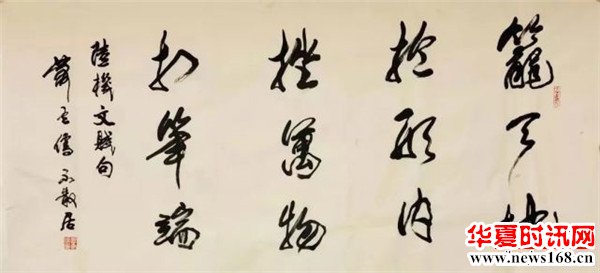 籠天地
於形内
挫萬物
於筆端
陸機文賦句
居
华夏时讯网
www.news168.cn